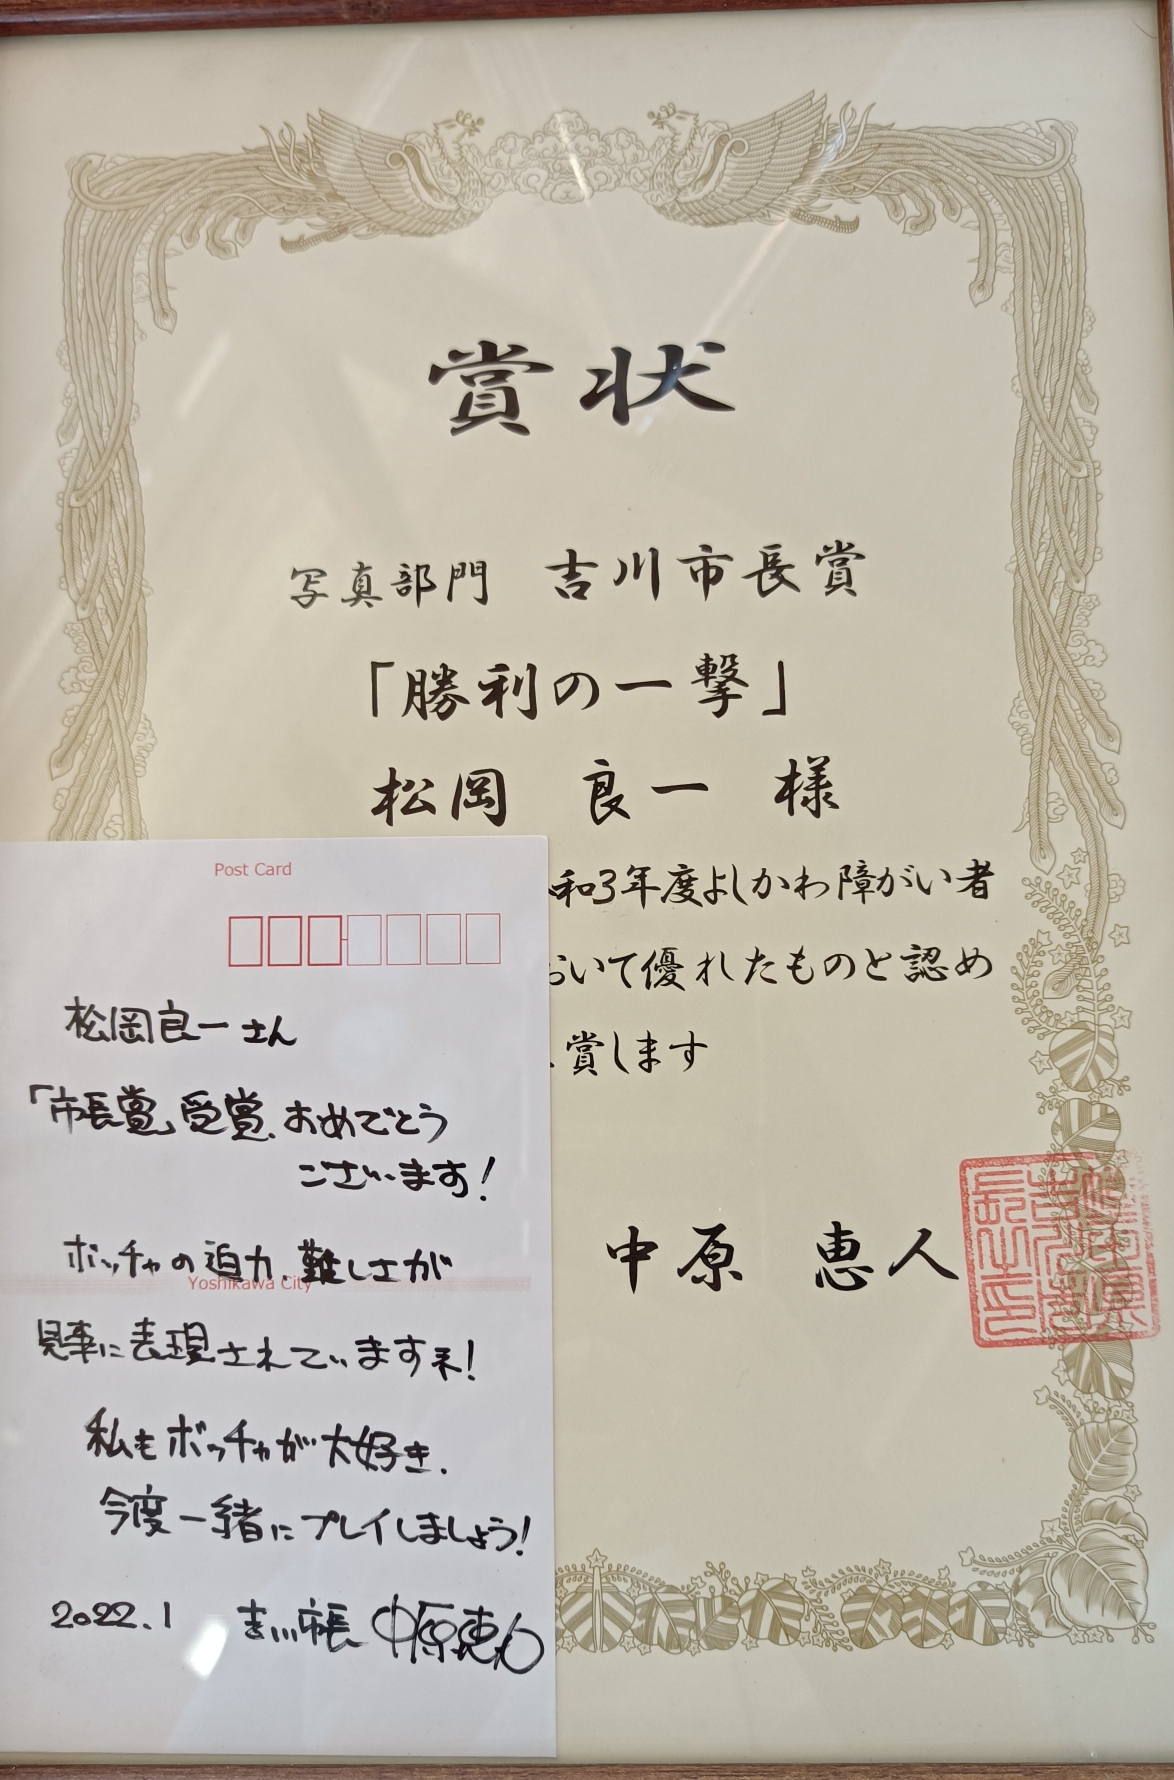 賞状
写真部門 吉川市長賞
「勝利の一撃」
松岡 良一 様
和3年度よしかわ障がい者
おいて優れたものと認め
賞します
中原 恵人
Post Card
松岡良一さん
「市長賞」受賞、おめでとう
ございます!
ボッチャの迫力、難しさが
Yoshikawa City
見事に表現されていますネ!
私もボッチャが大好き、
今度一緒にプレイしましょう!
2022.1 吉川市長 中原恵人